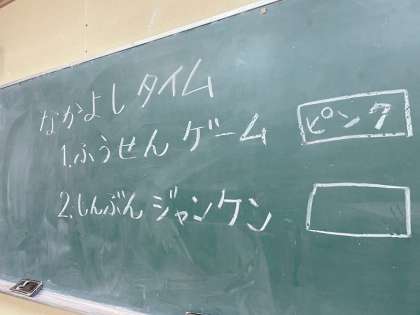 なかよしタイム
1.ふうせんゲーム
ピンク
2.しんぶんジャンケン